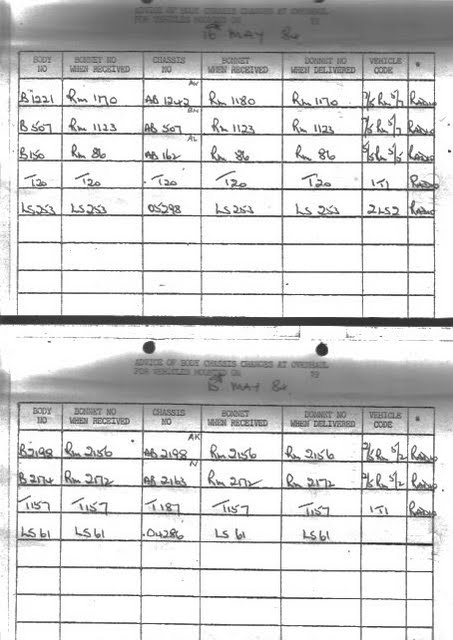 ADVICE OF BODY CHASSIS CHANGES AT OVERHAUL
FOR VEHICLES MOUNTED ON 19
16th MAY 84
BODY NO BONNET NO WHEN RECEIVED CHASSIS NO BONNET WHEN RECEIVED BONNET WHEN DELIVERED VEHICLE CODE *
AV
B1221 Rm 1170 AB 1242 Rm 1180 Rm 1170 7/5 Rm 5/7 RADIO
B507 Rm 1123 AB 507 Rm 1123 Rm 1123 7/5 Rm 5/7 RADIO
AL
B150 Rm 86 AB 162 Rm 86 Rm 86 5/5 Rm 5/5 RADIO
T20 T20 T20 T20 T20 1T1 RADIO
LS253 LS 253 05298 LS 253 LS 253 2LS2 RADIO
ADVICE OF BODY CHASSIS CHANGES AT OVERHAUL
FOR VEHICLES MOUNTED ON 19
15th MAY 84
BODY NO BONNET NO WHEN RECEIVED CHASSIS NO BONNET WHEN RECEIVED BONNET WHEN DELIVERED VEHICLE CODE *
AK
B2198 Rm 2156 AB 2198 Rm 2156 Rm 2156 2/5 Rm 5/2 RADIO
N
B2174 Rm 2172 AB 2163 Rm 2172 Rm 2172 2/5 Rm 5/2 RADIO
T1157 T1157 T1187 T1157 T1157 1T1 RADIO
LS 61 LS 61 04286 LS 61 LS 61